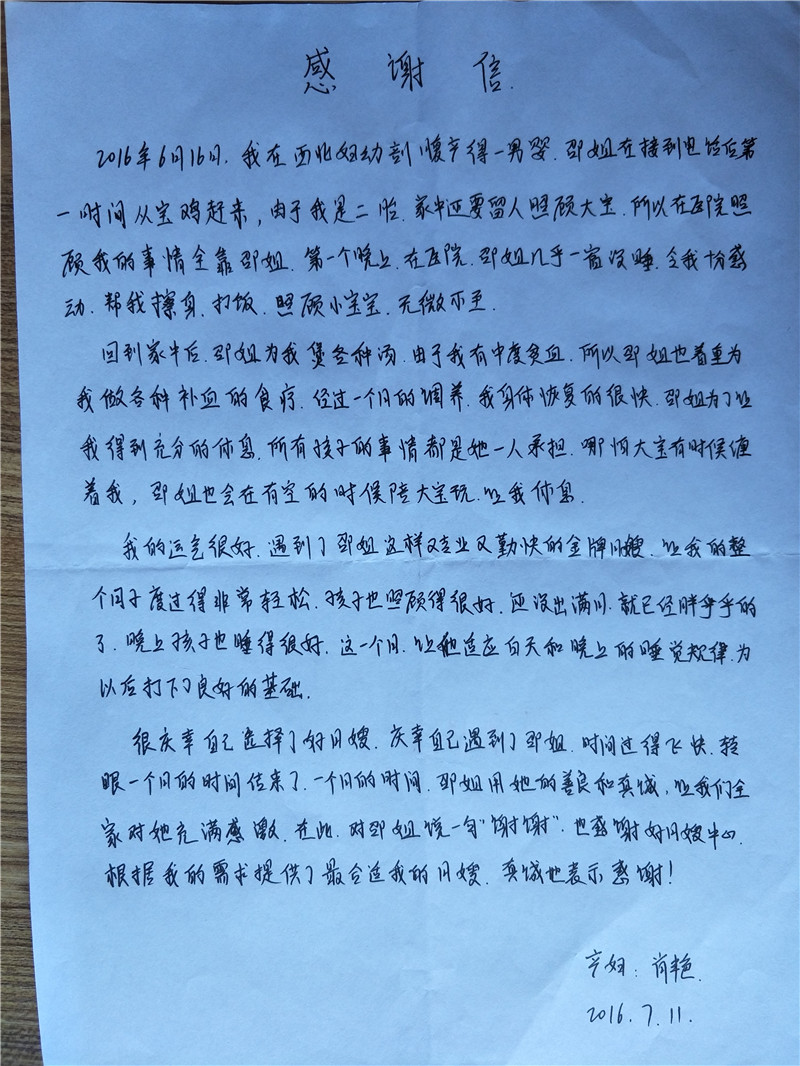 感谢信
2016年6月16日,我在西北妇幼剖腹产得一男婴.邵姐在接到电话后第
一时间从宝鸡赶来,由于我是二胎.家中还要留人照顾大宝.所以在医院照
顾我的事情全靠邵姐.第一个晚上.在医院.邵姐几乎一宿没睡.令我十分感
动.帮我擦身.打饭.照顾小宝宝.无微不至.
回到家中后.邵姐为我煲各种汤.由于我有中度贫血.所以邵姐也着重为
我做各种补血的食疗.经过一个月的调养.我身体恢复的很快.邵姐为了让
我得到充分的休息.所有孩子的事情都是她一人承担.哪怕大宝有时候缠
着我,邵姐也会在有空的时候陪大宝玩.让我休息.
我的运气很好.遇到了邵姐这样又专业又勤快的金牌月嫂.让我的整
个月子度过得非常轻松.孩子也照顾得很好.还没出满月.就已经胖乎乎的
了.晚上孩子也睡得很好.这一个月.让他适应白天和晚上的睡觉规律.为
以后打下了良好的基础.
很庆幸自己选择了好月嫂.庆幸自己遇到了邵姐.时间过得飞快.转
眼一个月的时间结束了.一个月的时间.邵姐用她的善良和真诚,让我们全
家对她充满感激.在此.对邵姐说一句"谢谢".也感谢好月嫂中心.
根据我的需求提供了最合适我的月嫂.真诚地表示感谢!
产妇:肖艳
2016.7.11.